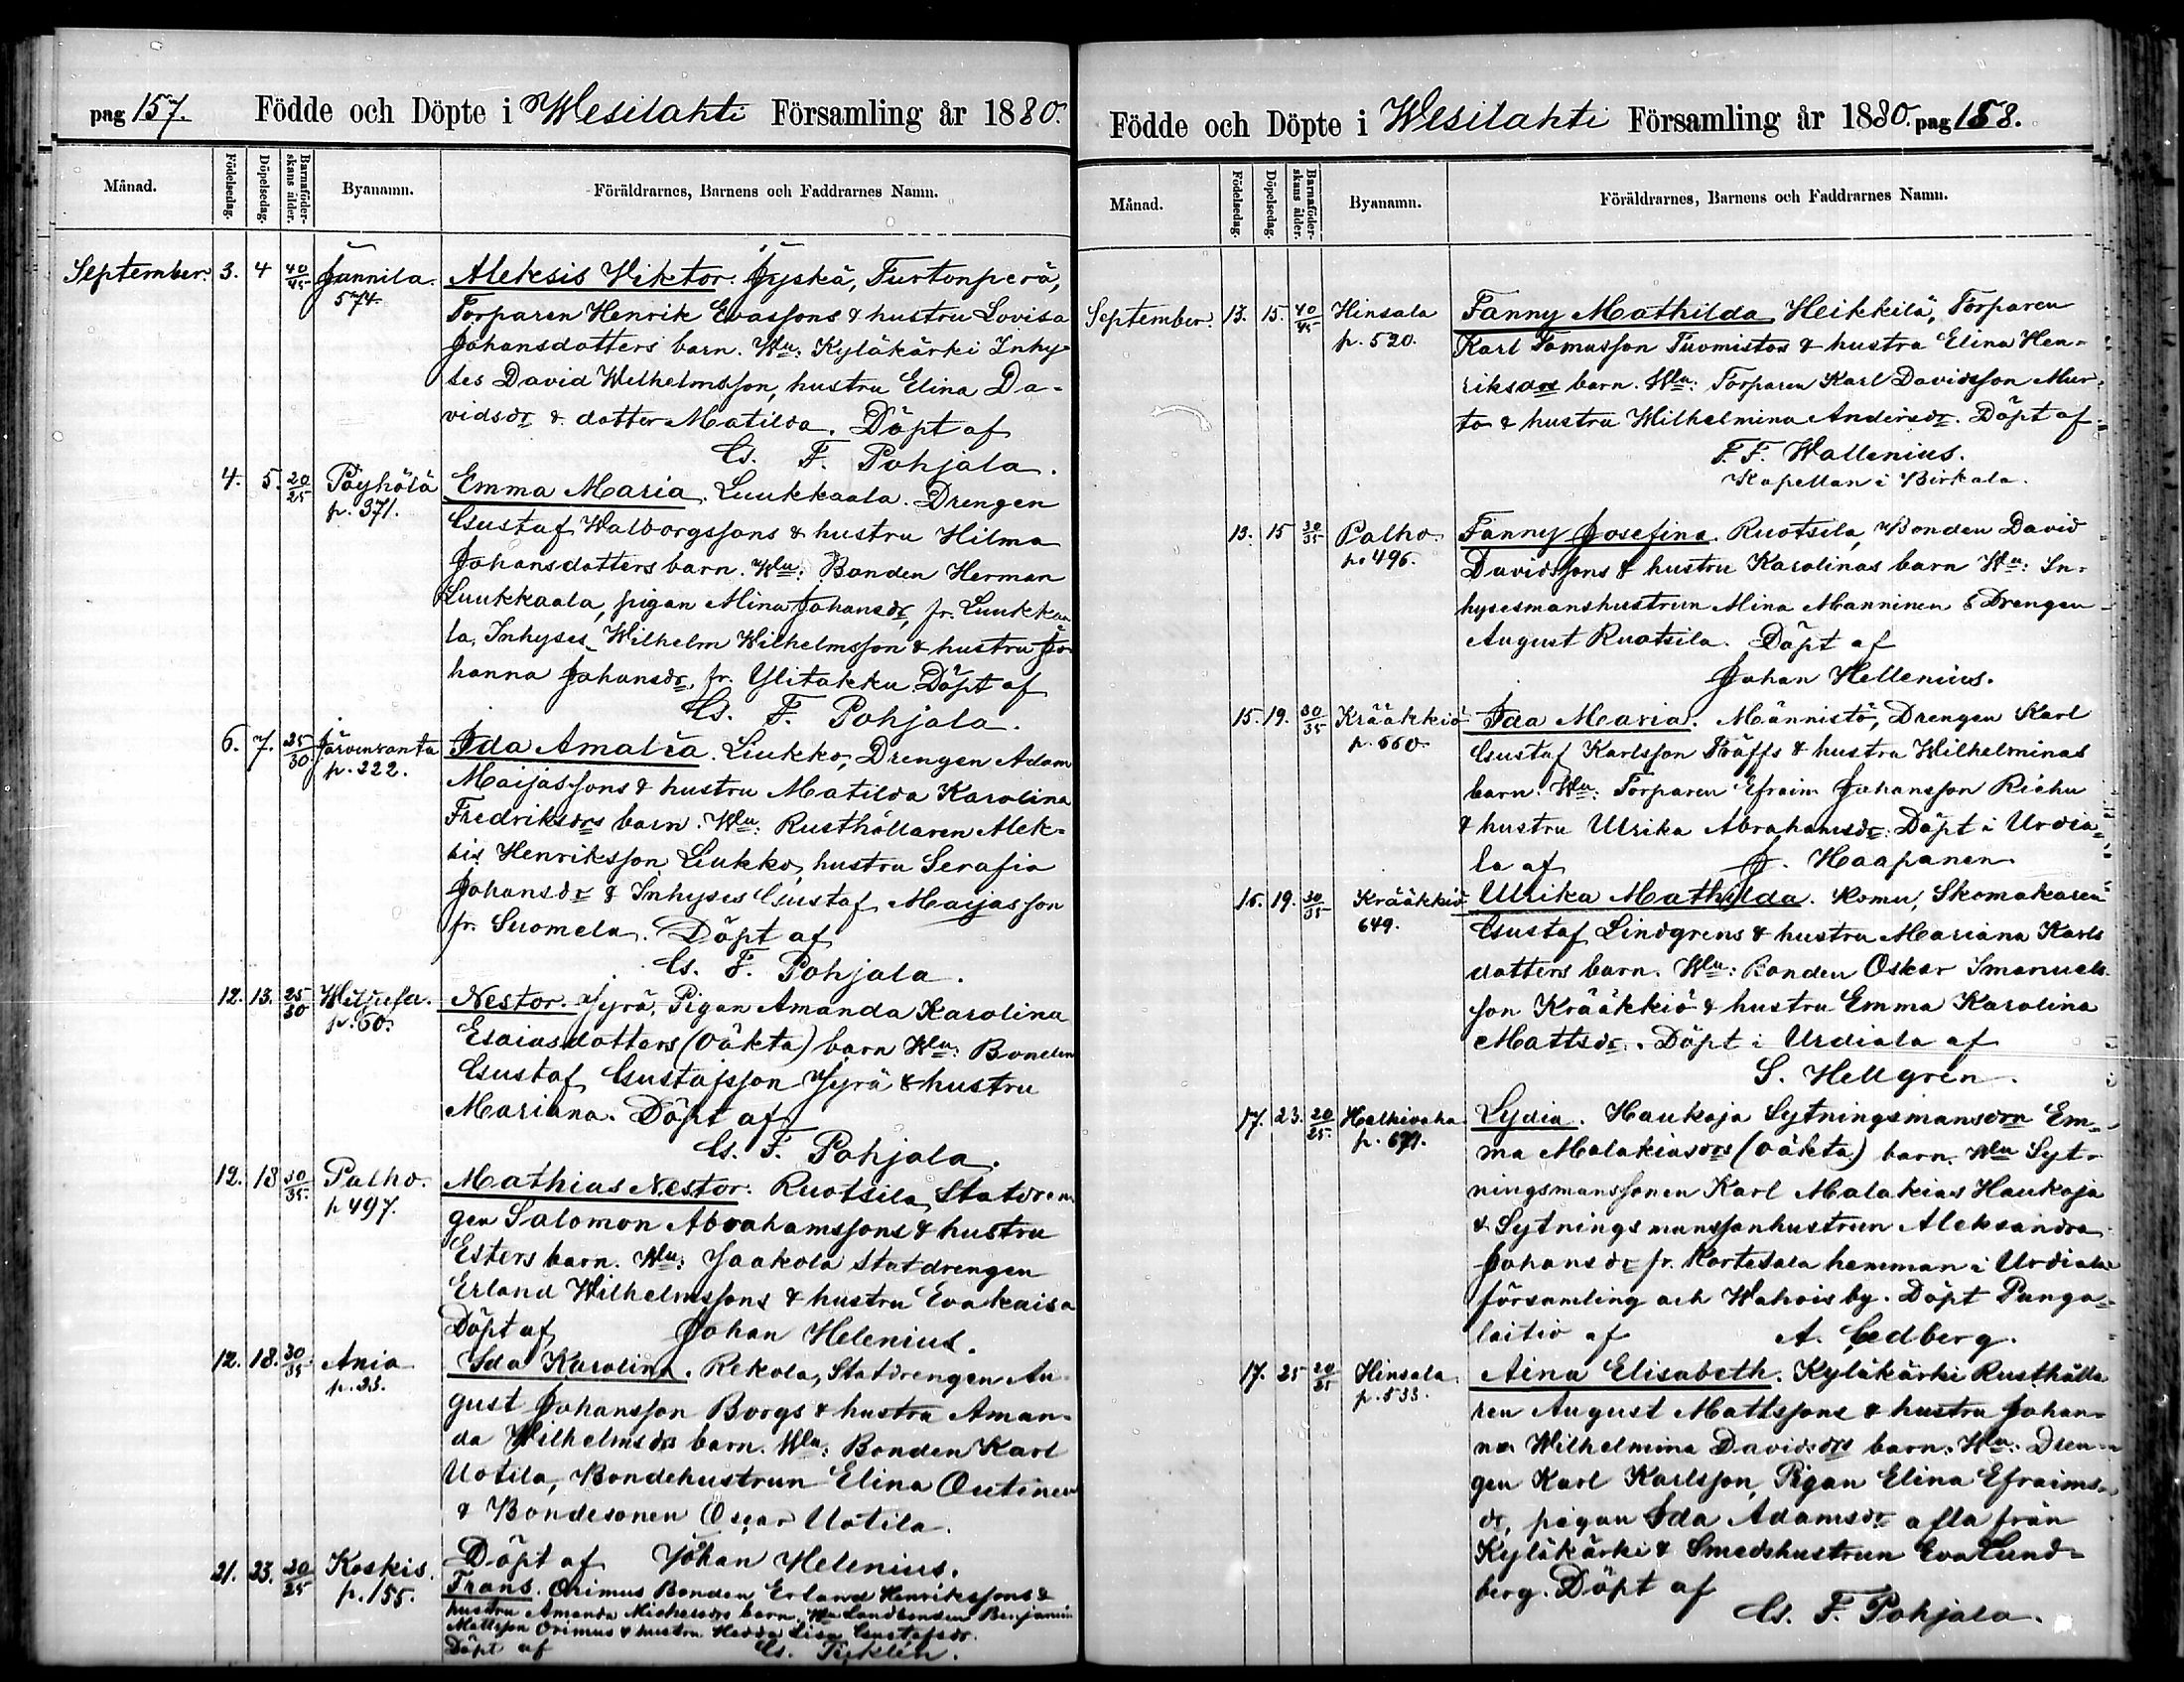 pag 157. Födde och Döpte i Wesilahti Församling år 1880.
Månad. Födelsedag. Döpelsedag. Barnaföderskans ålder. Byanamn. Föräldrarnes, Barnens och Faddrarnes Namn.
September. 3. 4 40/45 Junnila. Aleksis Viktor. Jyskä, Turtonperä,
574. Torparen Henrik Evassons & hustru Lovisa
Johansdotters barn. Wn: Kyläkärki Inhy-
ses David Wilhelmsson, hustru Elina Da-
vidsdr & dotter Matilda. Döpt af
G. F. Pohjala.
4. 5. 20/25 Pöyhölä Emma Maria. Luukkaala. Drengen
p. 371. Gustaf Walborgssons & hustru Hilma
Johansdotters barn. Wn: Bonden Herman
Luukkaala, pigan Mina Johansdr fr. Luukkaa
la, Inhyses Wilhelm Wilhelmsson & hustru Jo-
hanna Johansdr, fr. Ylitakku. Döpt af
G. F. Pohjala.
6. 7. 25/30 Järvenranta Ida Amalia. Liukko, Drengen Adam
p. 222. Maijassons & hustru Matilda Karolina
Fredriksdrs barn. Wn: Rusthållaren Alek-
sis Henriksson Liukko, hustru Serafia
Johansdr & Inhyses Gustaf Maijasson
fr. Suomela. Döpt af
G. F. Pohjala.
12. 13. 25/30 Nestor. Jyrä, Pigan Amanda Karolina
p. 60. Esaiasdotters (oäkta) barn Wn: Bonden
Gustaf Gustafsson Jyrä & hustru
Mariana. Döpt af
G. F. Pohjala.
12. 18 30/35 Palho. Mathias Nestor. Ruotsila, Statdren
p 497. gen Salomon Abrahamssons & hustru
Esters barn. Wn: Jaakola Statdrengen
Erland Wilhelmssons & hustru Eva Kaisa
Döpt af Johan Helenius.
12. 18. 30/35 Ania Ida Karolina. Rekola, Statdrengen Au-
p. 23. gust Johansson Borgs & hustru Aman-
da Wilhelmsdrs barn. Wn: Bonden Karl
Uotila, Bondehustrun Elina Outinen
& Bondesonen Oscar Uotila.
Döpt af Johan Helenius.
21. 23. 20/25 Koskis. Frans. Orimus Bonden Erland Henrikssons &
p. 155. hustru Amanda Michelsdrs barn. Wn Landbonden Benjamin
Mattsson Orimus & hustru Hedda Lisa Gustafsdr.
Döpt af G. Tyklén.
Födde och Döpte i Wesilahti Församling år 1880. pag 158.
Månad. Födelsedag. Döpelsedag. Barnaföderskans ålder. Byanamn. Föräldrarnes, Barnens och Faddrarnes Namn.
September. 13. 15. 40/45 Hinsala Fanny Mathilda, Heikkilä, Torparen
p. 520. Karl Tomasson Tuomistos & hustru Elina Hen-
riksdrs barn. Wn: Torparen Karl Davidsson Mur-
to & hustru Wilhelmina Andersdr. Döpt af
F. F. Wallenius.
Kapellan i Birkala.
13. 15 30/35 Palho Fanny Josefina. Ruotsila, Bonden David
p. 496. Davidssons & hustru Karolinas barn Wn: In-
hysesmanshustrun Mina Manninen & Drengen
August Ruotsila. Döpt af
Johan Hellenius.
15. 19. 30/35 Krääkkiö Ida Maria. Männistö, Drengen Karl
p. 660. Gustaf Karlsson Träffs & hustru Wilhelminas
barn. Wn: Torparen Efraim Johansson Riehu
& hustru Ulrika Abrahamsdr. Döpt i Urdia-
la af J. Haapanen.
15. 19. 30/35 Krääkkiö Ulrika Mathilda. Komu, Skomakaren
649. Gustaf Lindgrens & hustru Mariana Karls
dotters barn. Wn: Bonden Oskar Imanuels-
son Krääkkiö & hustru Emma Karolina
Mattsdr. Döpt i Urdiala af
S. Hellgrén.
17. 23. 20/25. Halkivaha Lydia. Haukoja Sytningsmansdrn Em-
p. 677. ma Malakiasdrs (oäkta) barn. Wn Syt-
ningsmanssonen Karl Malakias Haukoja
& Sytningsmanssonhustrun Aleksandra
Johansdr fr. Kortesala hemman i Urdiala
församling och Wahois by. Döpt Punga-
laitio af A. Cedberg.
17. 25 20/25 Hinsala. Aina Elisabeth. Kyläkärki Rusthålla
p. 533. ren August Mattssons & hustru Johan-
na Wilhelmina Davidsdrs barn. Wn: Dren-
gen Karl Karlsson, Pigan Elina Efraims-
dr, pigan Ida Adamsdr alla från
Kyläkärki & Smedshustrun Eva Lund-
berg. Döpt af
G. F. Pohjala.